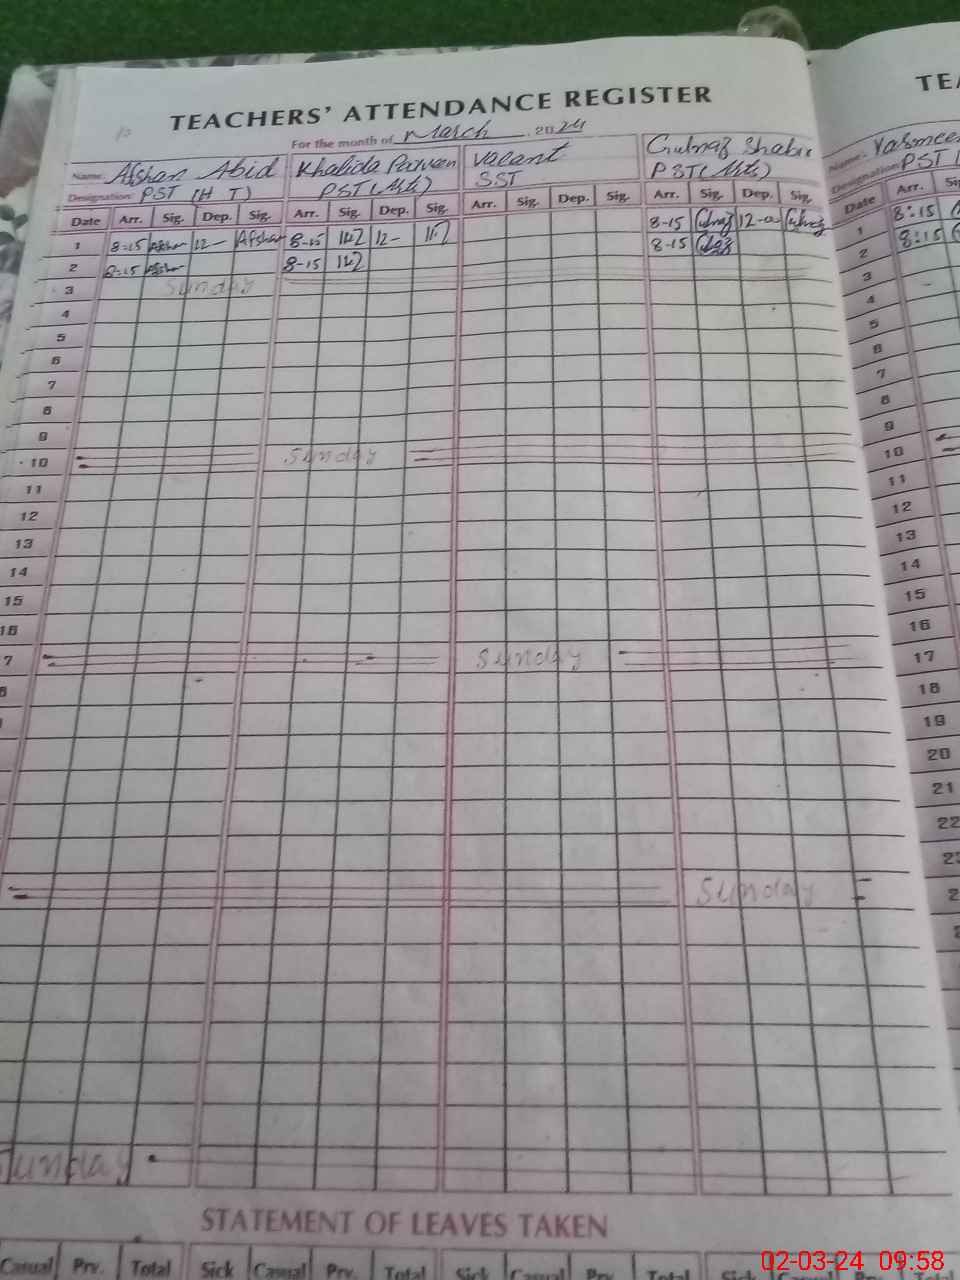 TEACHERS' ATTENDANCE REGISTER
For the month of March 2024
Name: Afshan Abid Khalida Parveen Vacant Gulnaz Shabir
Designation: PST (H T) PST (Arts) SST PST (Arts)
Date Arr. Sig. Dep. Sig. Arr. Sig. Dep. Sig. Arr. Sig. Dep. Sig. Arr. Sig. Dep. Sig.
1 8:15 Afshan 12- Afshan 8-15 12- 8-15 Gulnaz 12-0 Gulnaz
2 8:15 Afshan 8-15 8-15
3 Sunday
4
5
6
7
8
9
10 Sunday
11
12
13
14
15
16
7 Sunday
8
Sunday
Sunday
STATEMENT OF LEAVES TAKEN
Casual Prv. Total Sick Casual Prv. Total Sick Casual Prv. Total Sick Casual Prv. Total
TEA
Name: Yasmee
Designation: PST
Date Arr. Si
1 8:15
2 8:15
3
4
5
6
7
8
9
10
11
12
13
14
15
16
17
18
19
20
21
22
23
2
02-03-24 09:58